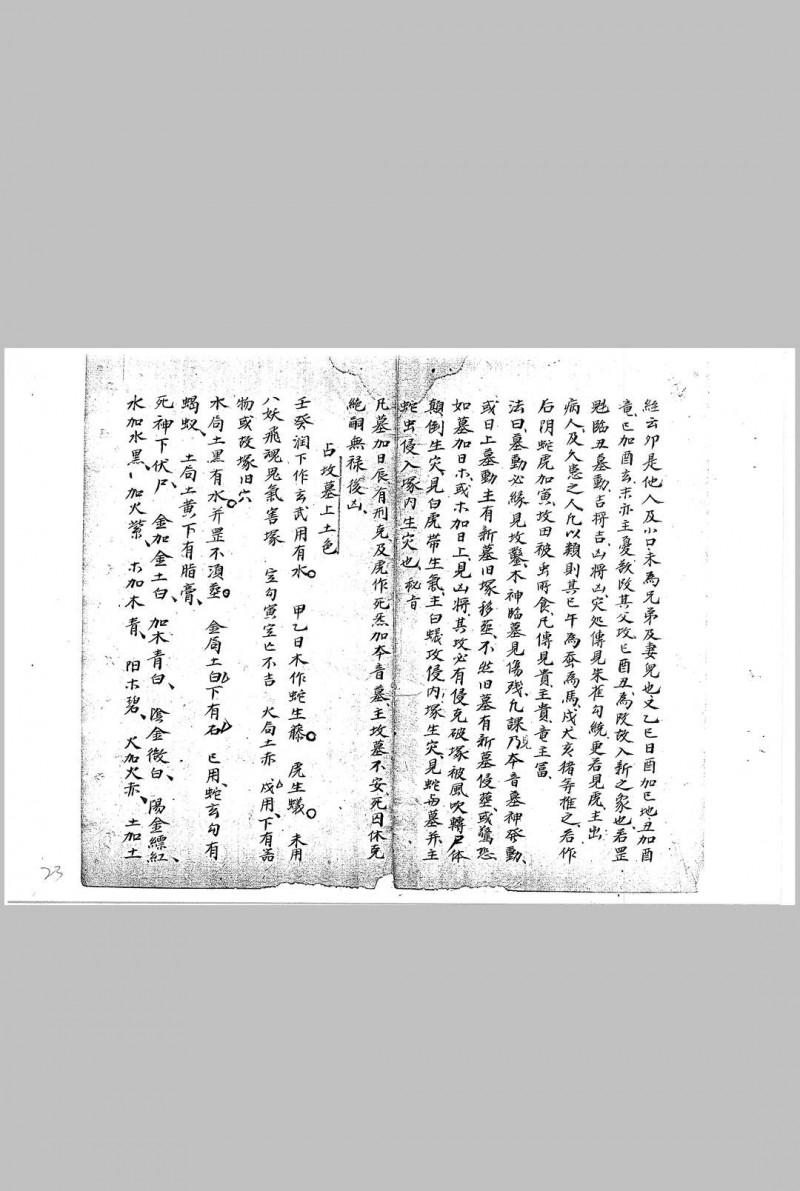 經云卯是他人及小口未為兄弟及妻兒也又乙巳日酉加巳地丑加酉
竟巳加酉玄未亦主憂敌改其父坟巳酉丑為改故入新之象也若罡
魁臨丑墓動吉將吉凶將凶灾処傳見朱雀勾繞更若見虎主出
病人及久患之人凢以類則其巳午為蚕為馬戌犬亥猪等推之若作
后阴蛇虎加寅坟田被虫所食凡傳見貴主貴竜主冨
法曰墓動必緣見坟鑿木神臨墓見傷残凢課乃見本音墓神發動
或日上墓動主有新墓旧塚移塟不然旧墓有新墓侵塟或驚恐
如墓加日木或木加日上見凶將其坟必有侵克破塚被風吹轉尸体
顛倒生灾見白虎带生氣主白蟻攻侵内塚生灾見蛇与墓并主
蛇虫侵入塚内生灾也秘旨
凡墓加日辰有刑克及虎作死炁加本音墓主坟墓不安死囚休克
絶嗣無禄後凶
占坟墓上土色
壬癸润下作玄武用有水。甲乙日木作蛇生藤。虎生蟻。未用
八妖飛魂鬼氣害塚 空勾寅空亡不吉 火局土赤戌用下有窑
物或改塚旧穴
水局土黑有水并罡不須塟。金局土白下有石 巳用蛇玄勾有
蝎蚁、土局土黄下有脂膏、
死神下伏尸 金加金土白、加木青白、陰金微白、陽金縹紅、
水加水黑、加火紫、木加木青、阳木碧、火加火赤、土加土
23